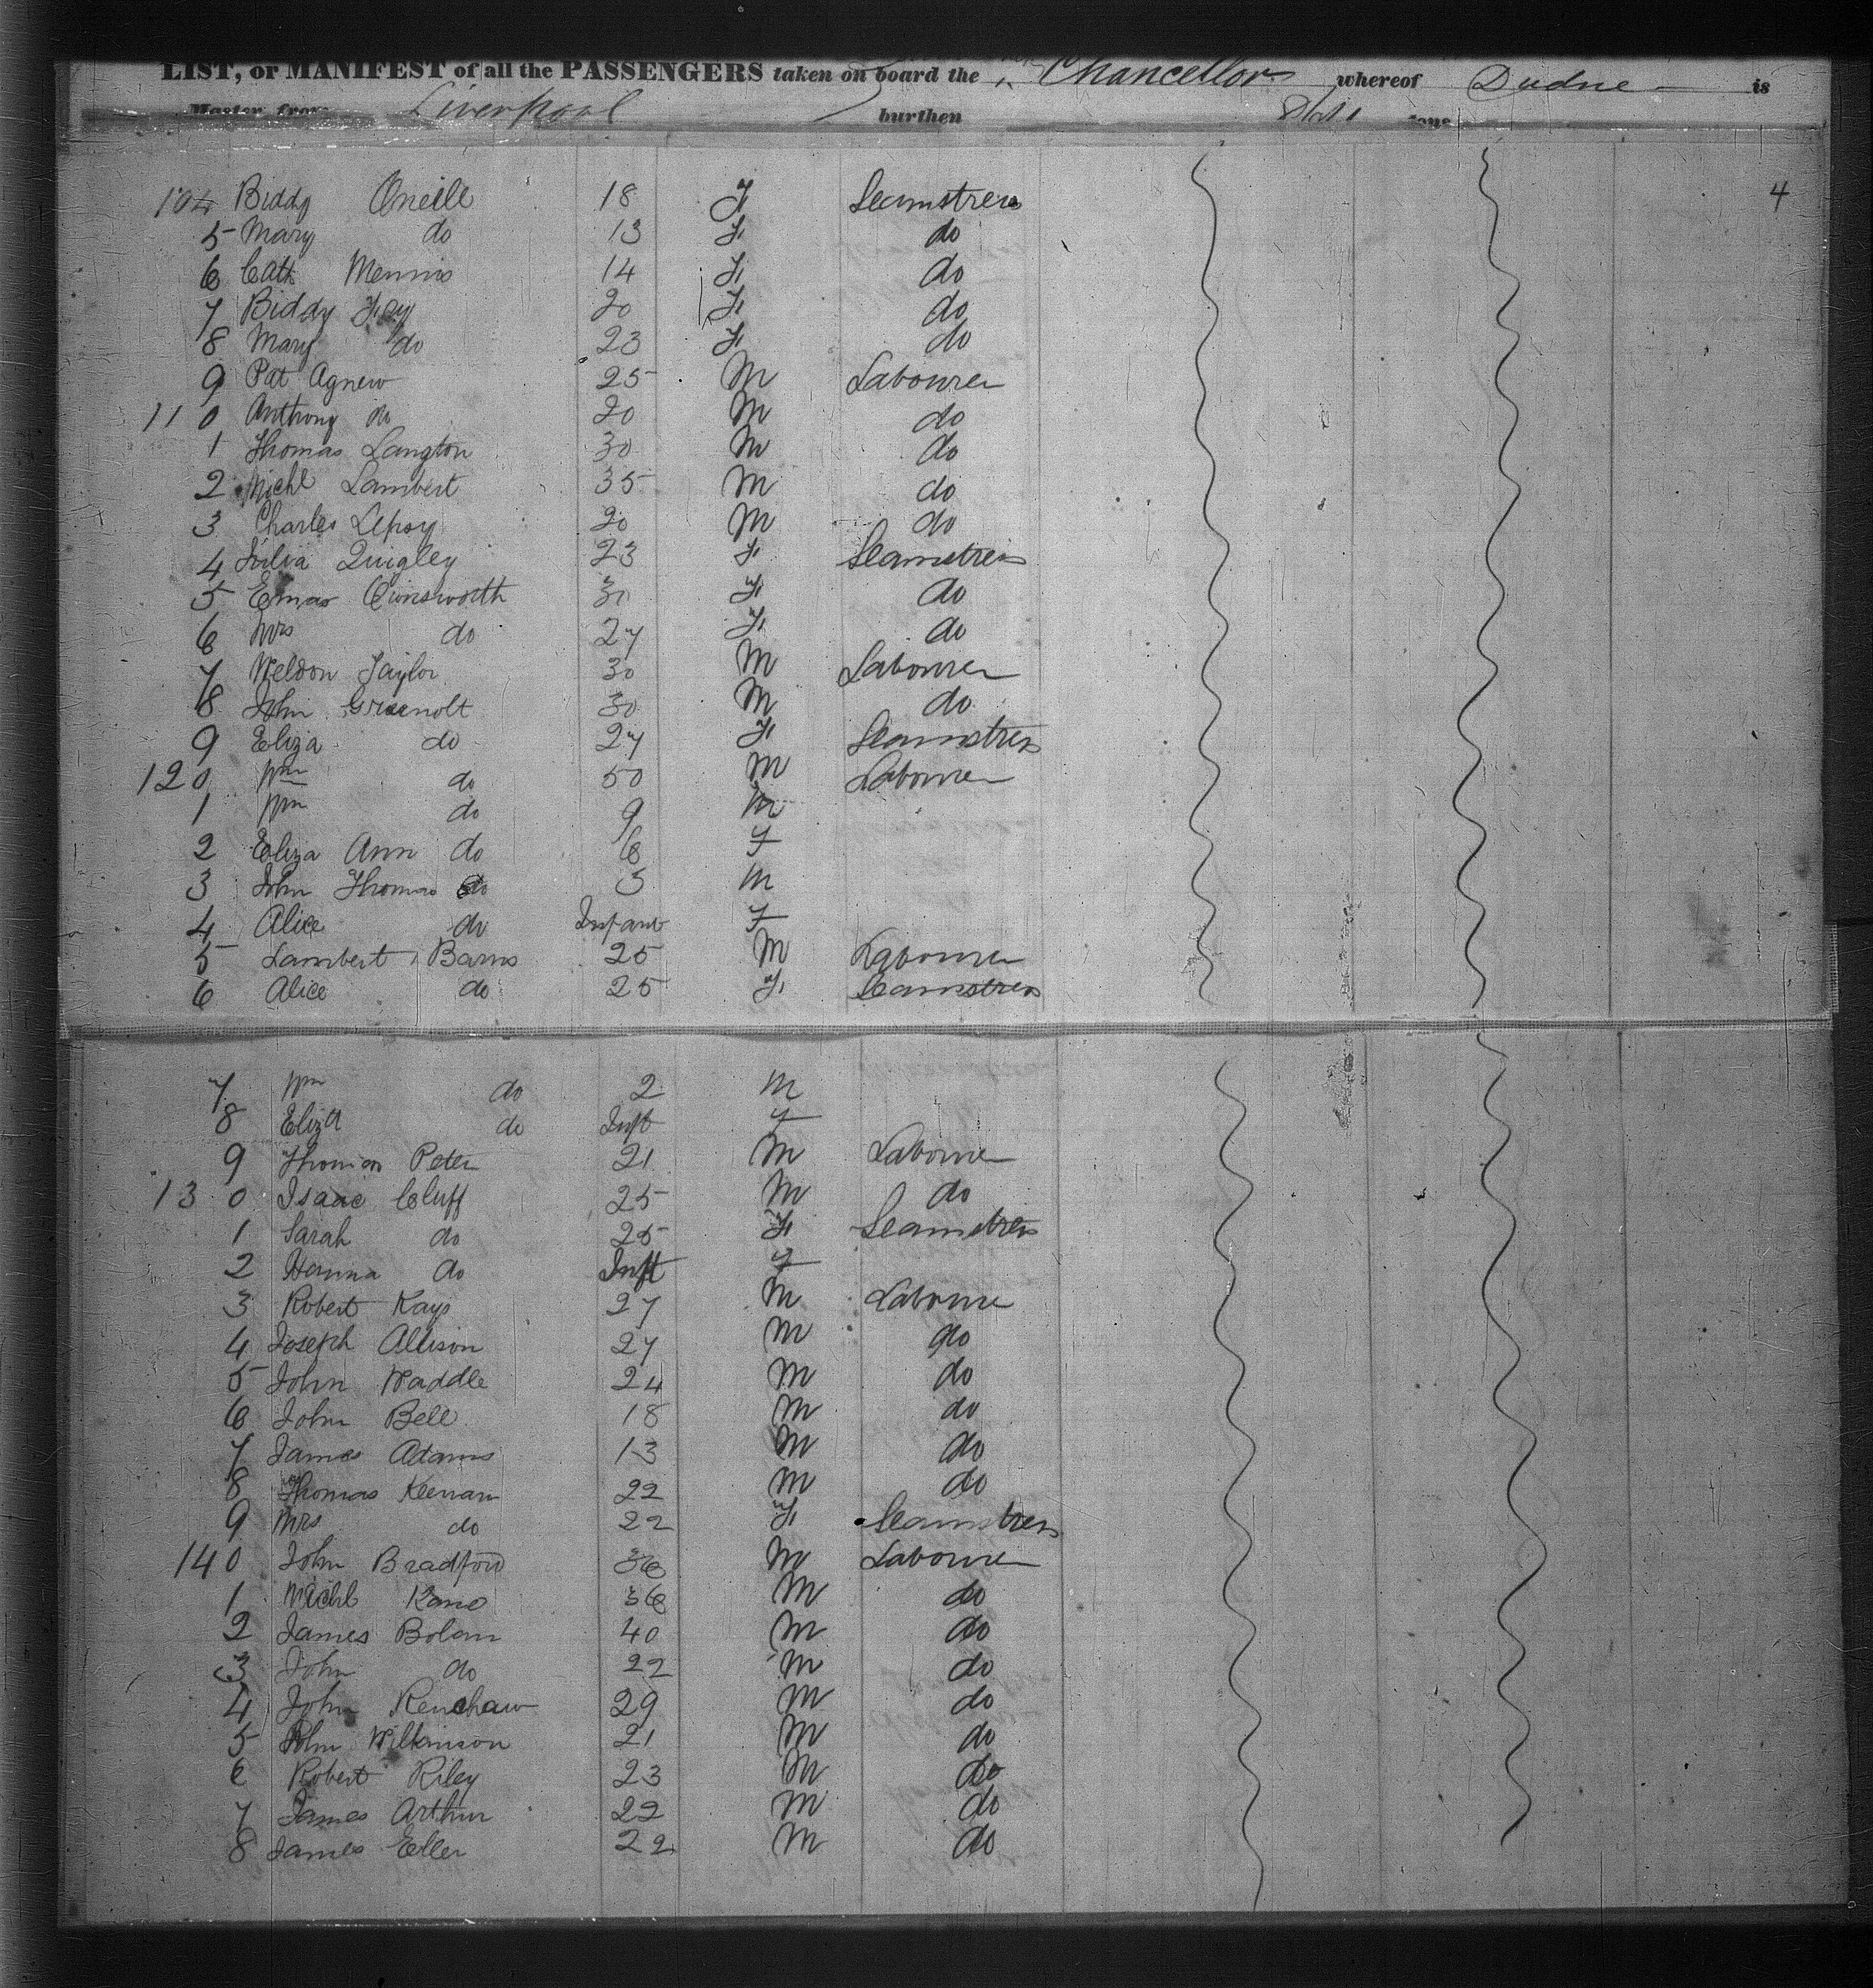 LIST, or MANIFEST of all the PASSENGERS taken on board the Chancellor whereof is
Master, from Liverpool burthen tons
4
104 Biddy Oneill 18 F Seamstress
5 Mary do 13 F do
6 Cath Mennis 14 F do
7 Biddy Foy 20 F do
8 Mary do 23 F do
9 Pat Agnew 25 M Labourer
110 Anthony do 20 M do
1 Thomas Langton 30 M do
2 Michl Lambert 35 M do
3 Charles 20 M do
4 Julia Quigley 23 F Seamstress
5 30 F do
6 Mrs do 27 F do
7 Weldon Taylor 30 M Labourer
8 John 30 M do
9 Eliza do 27 F Seamstress
120 Wm do 50 M Labourer
1 Wm do 9 M
2 Eliza Ann do 6 F
3 John Thomas do 3 M
4 Alice do Infant F
5 Lambert Barns 25 M Labourer
6 Alice do 25 F Seamstress
7 Wm do 2 M
8 Eliza do Inft F
9 Thomas Peter 21 M Labourer
130 Isaac Cluff 25 M do
1 Sarah do 25 F Seamstress
2 Hanna do Inft F
3 Robert Kays 27 M Labourer
4 Joseph Allison 27 M do
5 John Waddle 24 M do
6 John Bell 18 M do
7 James Adams 13 M do
8 Thomas Keenan 22 M do
9 Mrs do 22 F Seamstress
140 John Bradford 36 M Labourer
1 Michl Kane 36 M do
2 James Bolam 40 M do
3 John do 22 M do
4 John Renshaw 29 M do
5 John Wilkinson 21 M do
6 Robert Riley 23 M do
7 James Arthur 22 M do
8 James Eller 22 M do